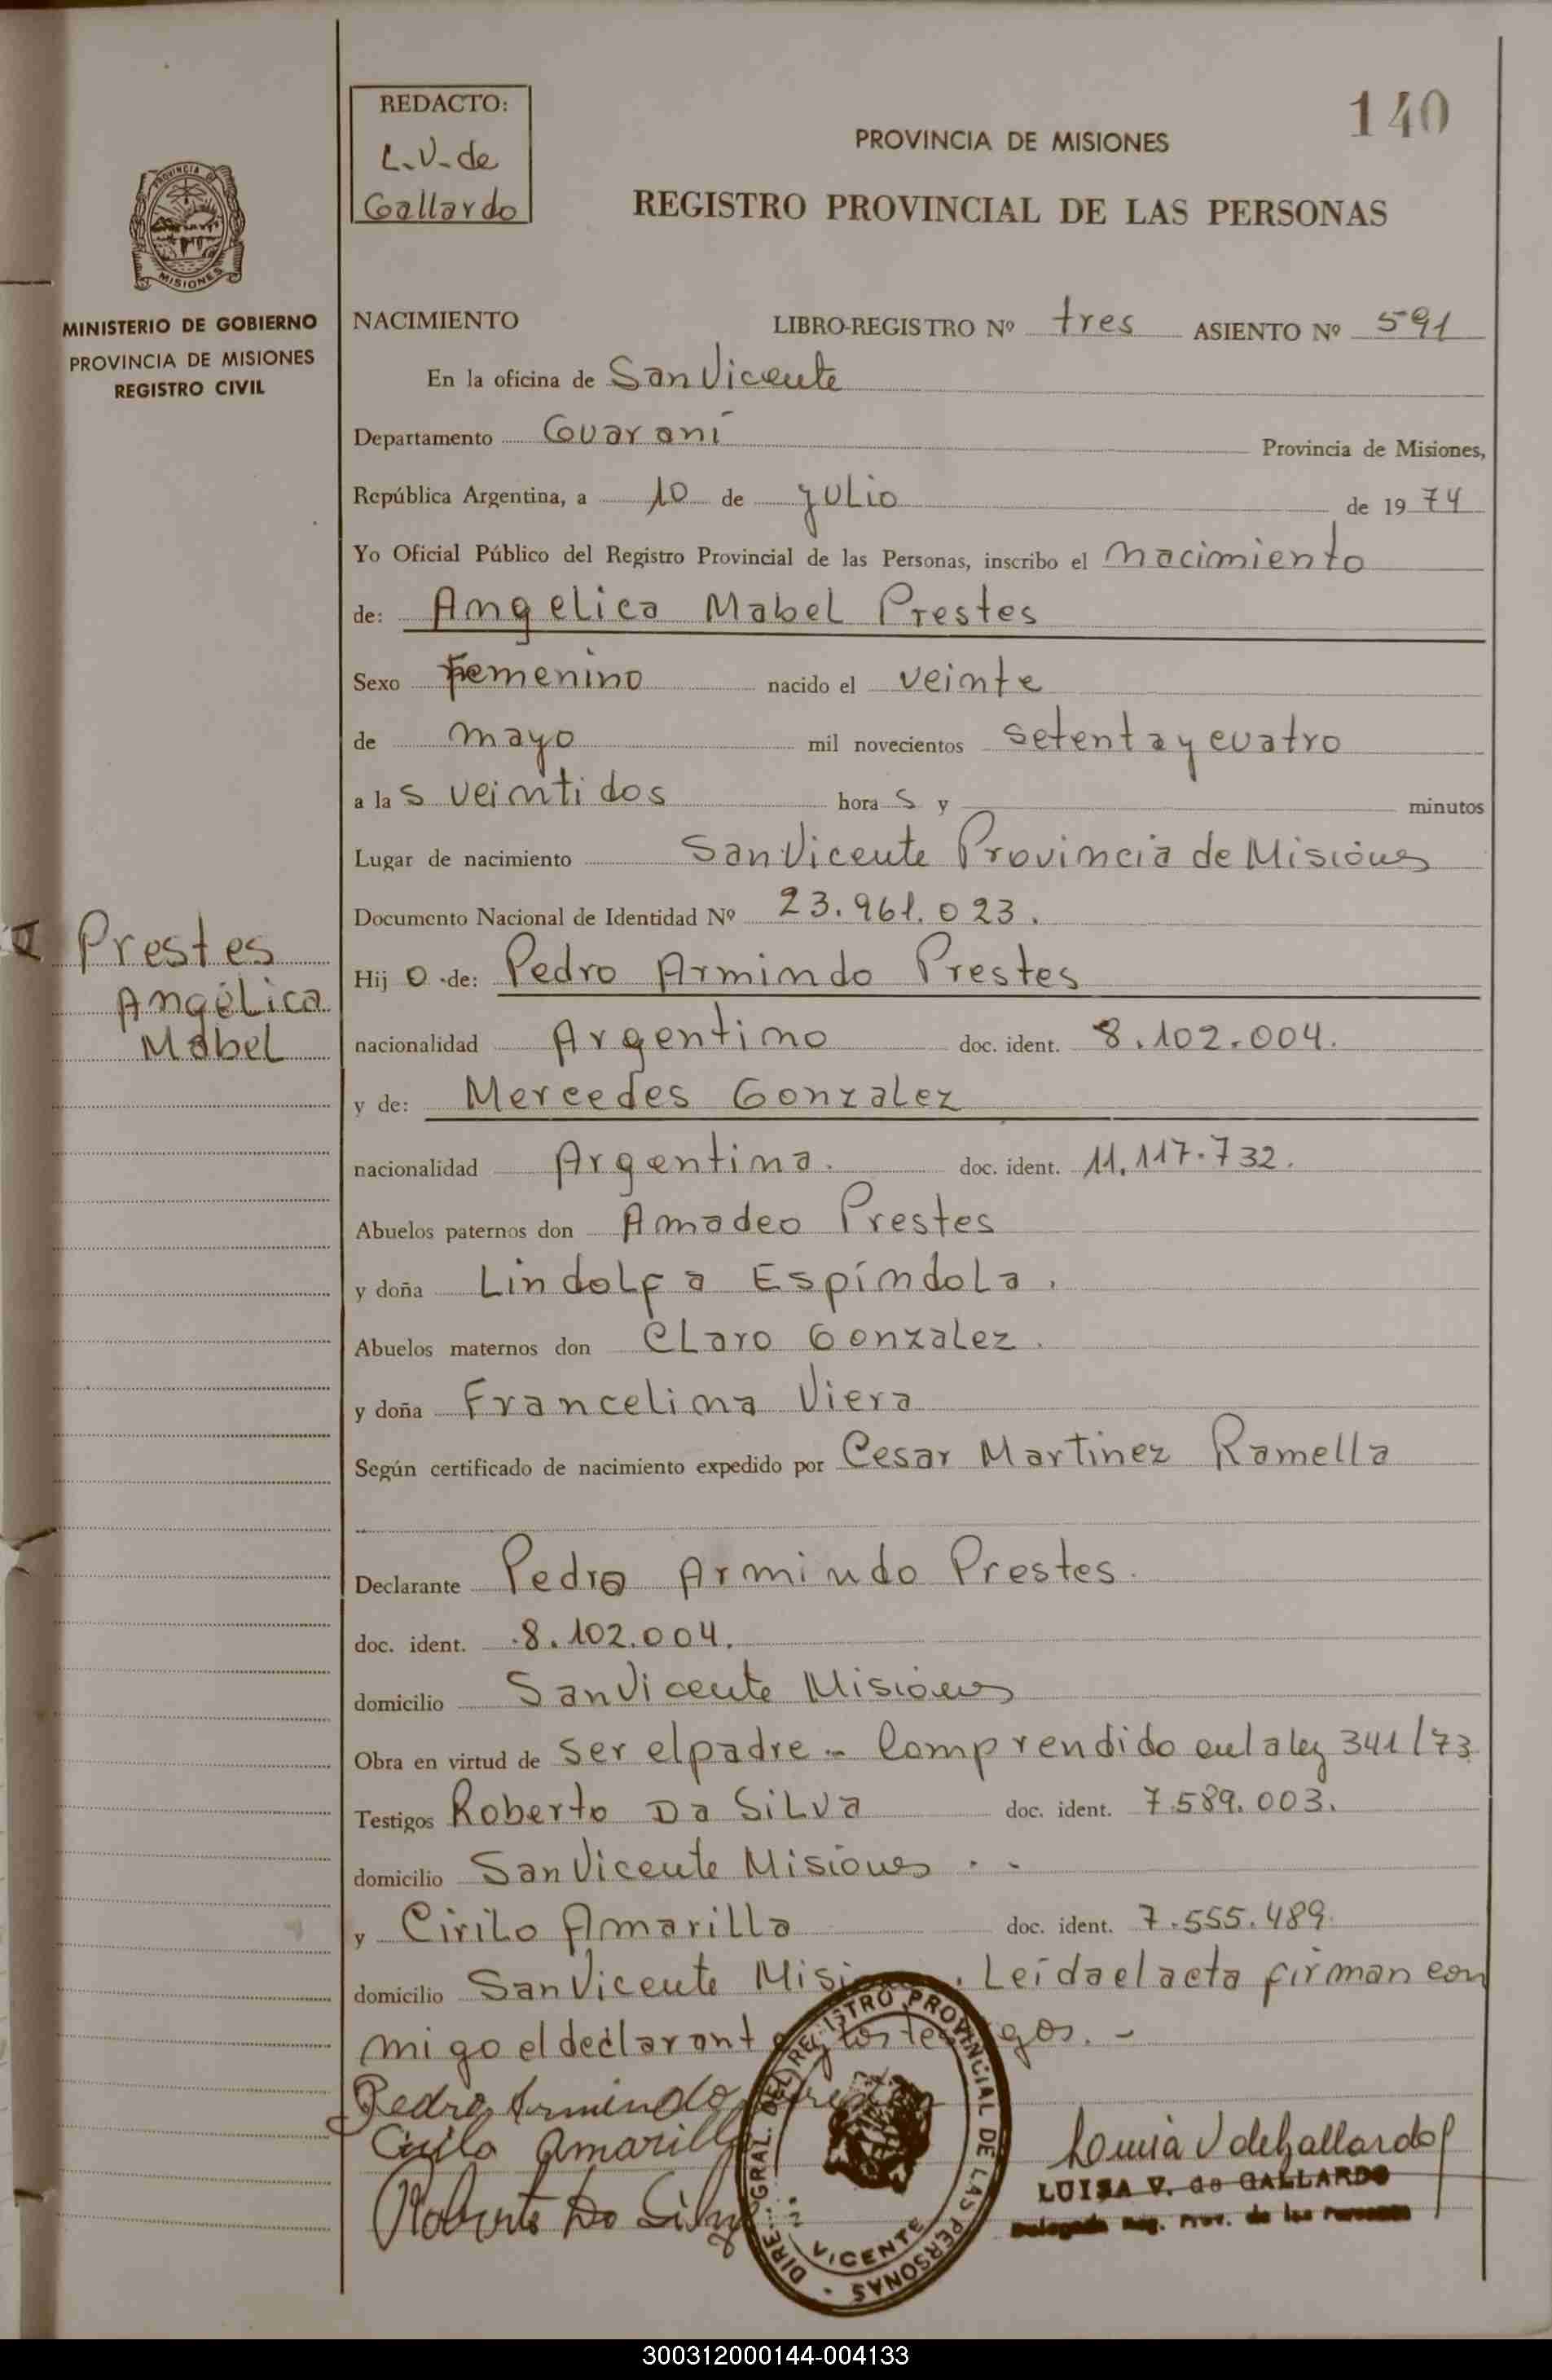 140
REDACTO:
L.V. de
Gallardo
PROVINCIA DE MISIONES
REGISTRO PROVINCIAL DE LAS PERSONAS
PROVINCIA DE
MISIONES
MINISTERIO DE GOBIERNO
PROVINCIA DE MISIONES
REGISTRO CIVIL
NACIMIENTO LIBRO-REGISTRO Nº tres ASIENTO Nº 591
En la oficina de San Vicente
Departamento Guaraní Provincia de Misiones,
República Argentina, a 10 de julio de 1974
Yo Oficial Público del Registro Provincial de las Personas, inscribo el nacimiento
de: Angelica Mabel Prestes
Sexo Femenino nacido el veinte
de mayo mil novecientos setenta y cuatro
a las veintidos horas y minutos
Lugar de nacimiento San Vicente Provincia de Misiones
Documento Nacional de Identidad Nº 23.961.023.
Prestes
Angélica
Mabel
Hijo de: Pedro Armindo Prestes
nacionalidad Argentino doc. ident. 8.102.004.
y de: Mercedes Gonzalez
nacionalidad Argentina. doc. ident. 11.117.732.
Abuelos paternos don Amadeo Prestes
y doña Lindolfa Espíndola.
Abuelos maternos don Claro Gonzalez.
y doña Francelina Viera
Según certificado de nacimiento expedido por Cesar Martinez Ramella
Declarante Pedro Armindo Prestes.
doc. ident. 8.102.004.
domicilio San Vicente Misiones
Obra en virtud de ser el padre - Comprendido en la ley 341/73
Testigos Roberto Da Silva doc. ident. 7.589.003.
domicilio San Vicente Misiones . -
y Cirilo Amarilla doc. ident. 7.555.489.
domicilio San Vicente Misiones. Leída el acta firman con
migo el declarante y los testigos. -
Pedro Armindo Prestes
Cirilo Amarilla
Roberto Da Silva
DIREC. GRAL. DEL REGISTRO PROVINCIAL DE LAS PERSONAS
VICENTE
Louisa V de Gallardo
LUISA V. de GALLARDO
Delegada Reg. Prov. de las Personas
300312000144-004133